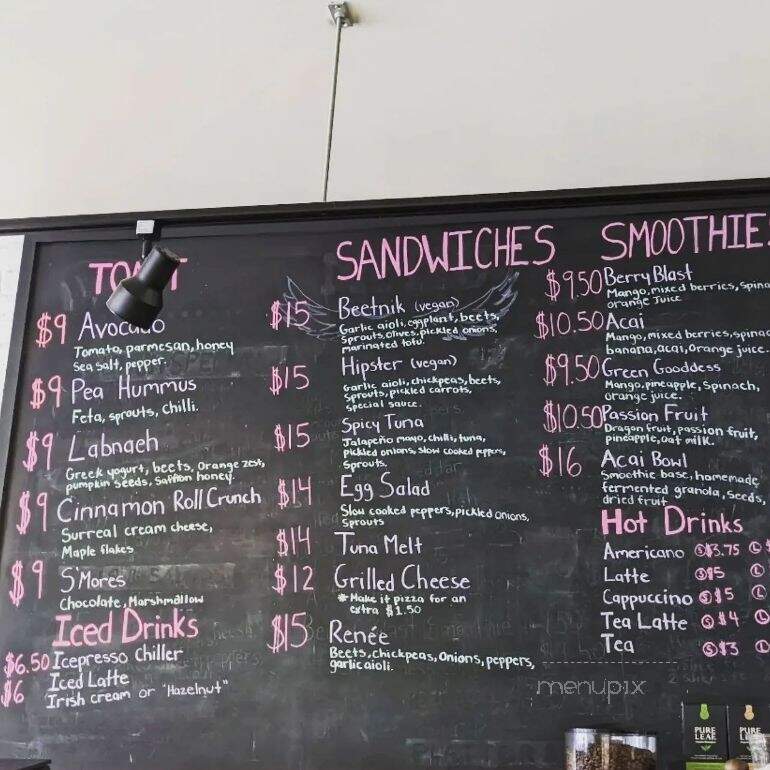 TOAST
$9 Avocado
Tomato, parmesan, honey
Sea salt, pepper.
$9 Pea Hummus
Feta, sprouts, chilli.
$9 Labnaeh
Greek yogurt, beets, orange zest,
pumpkin seeds, saffron honey.
$9 Cinnamon Roll Crunch
Surreal cream cheese,
Maple flakes
$9 S'Mores
Chocolate, Marshmallow
Iced Drinks
$6.50 Icepresso Chiller
$6 Iced Latte
Irish cream or "Hazelnut"
SANDWICHES
$15 Beetnik (vegan)
Garlic aioli, eggplant, beets,
Sprouts, olives, pickled onions,
marinated tofu.
$15 Hipster (vegan)
Garlic aioli, chickpeas, beets,
Sprouts, pickled carrots,
special sauce.
$15 Spicy Tuna
Jalapeño mayo, chilli, tuna,
pickled onions, slow cooked peppers,
Sprouts.
$14 Egg Salad
Slow cooked peppers, pickled onions,
Sprouts
$14 Tuna Melt
$12 Grilled Cheese
* Make it pizza for an
extra $1.50
$15 Renée
Beets, chickpeas, onions, peppers,
garlic aioli.
SMOOTHIE
$9.50 Berry Blast
Mango, mixed berries, spina
orange Juice
$10.50 Acai
Mango, mixed berries, spinac
banana, acai, orange juice.
$9.50 Green Gooddess
Mango, pineapple, Spinach,
orange juice.
$10.50 Passion Fruit
Dragon fruit, passion fruit,
pineapple, oat milk.
$16 Acai Bowl
Smoothie base, homemade
fermented granola, seeds,
dried fruit
Hot Drinks
Americano S $3.75 L
Latte S $5 L
Cappuccino S $5 L
Tea Latte S $4 L
Tea S $3 L
menupix
PURE LEAF
PURE